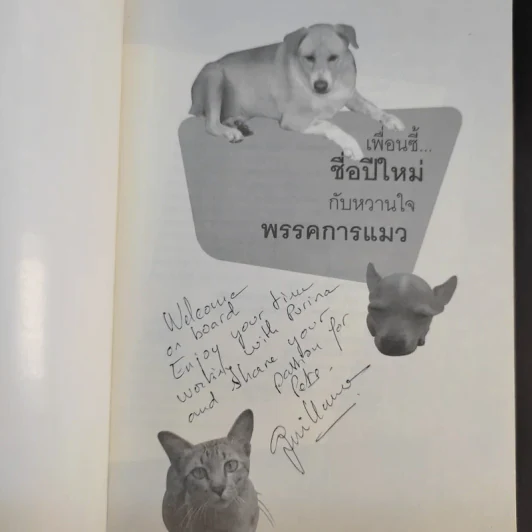 เพื่อนซี้...
ชื่อปีใหม่
กับหวานใจ
พรรคการแมว
Welcome
on board
Enjoy your time
working with Purina
and share your
passion for
Pets.
Guillaume